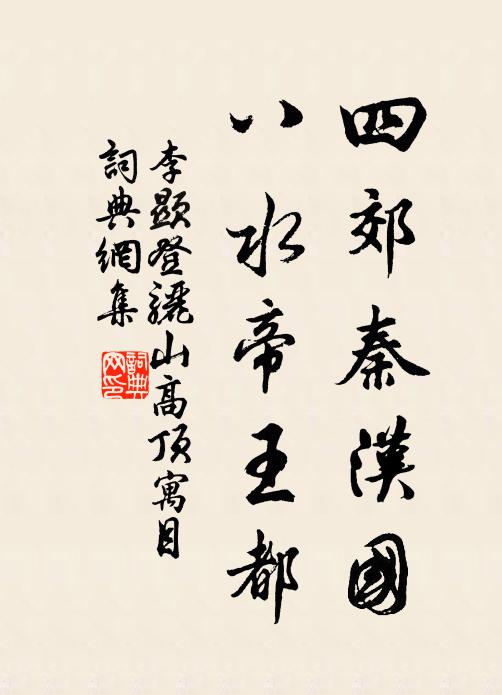 四郊秦漢國
八水帝王都
李顯登驪山高頂寓目
詞典網集
詞典網印